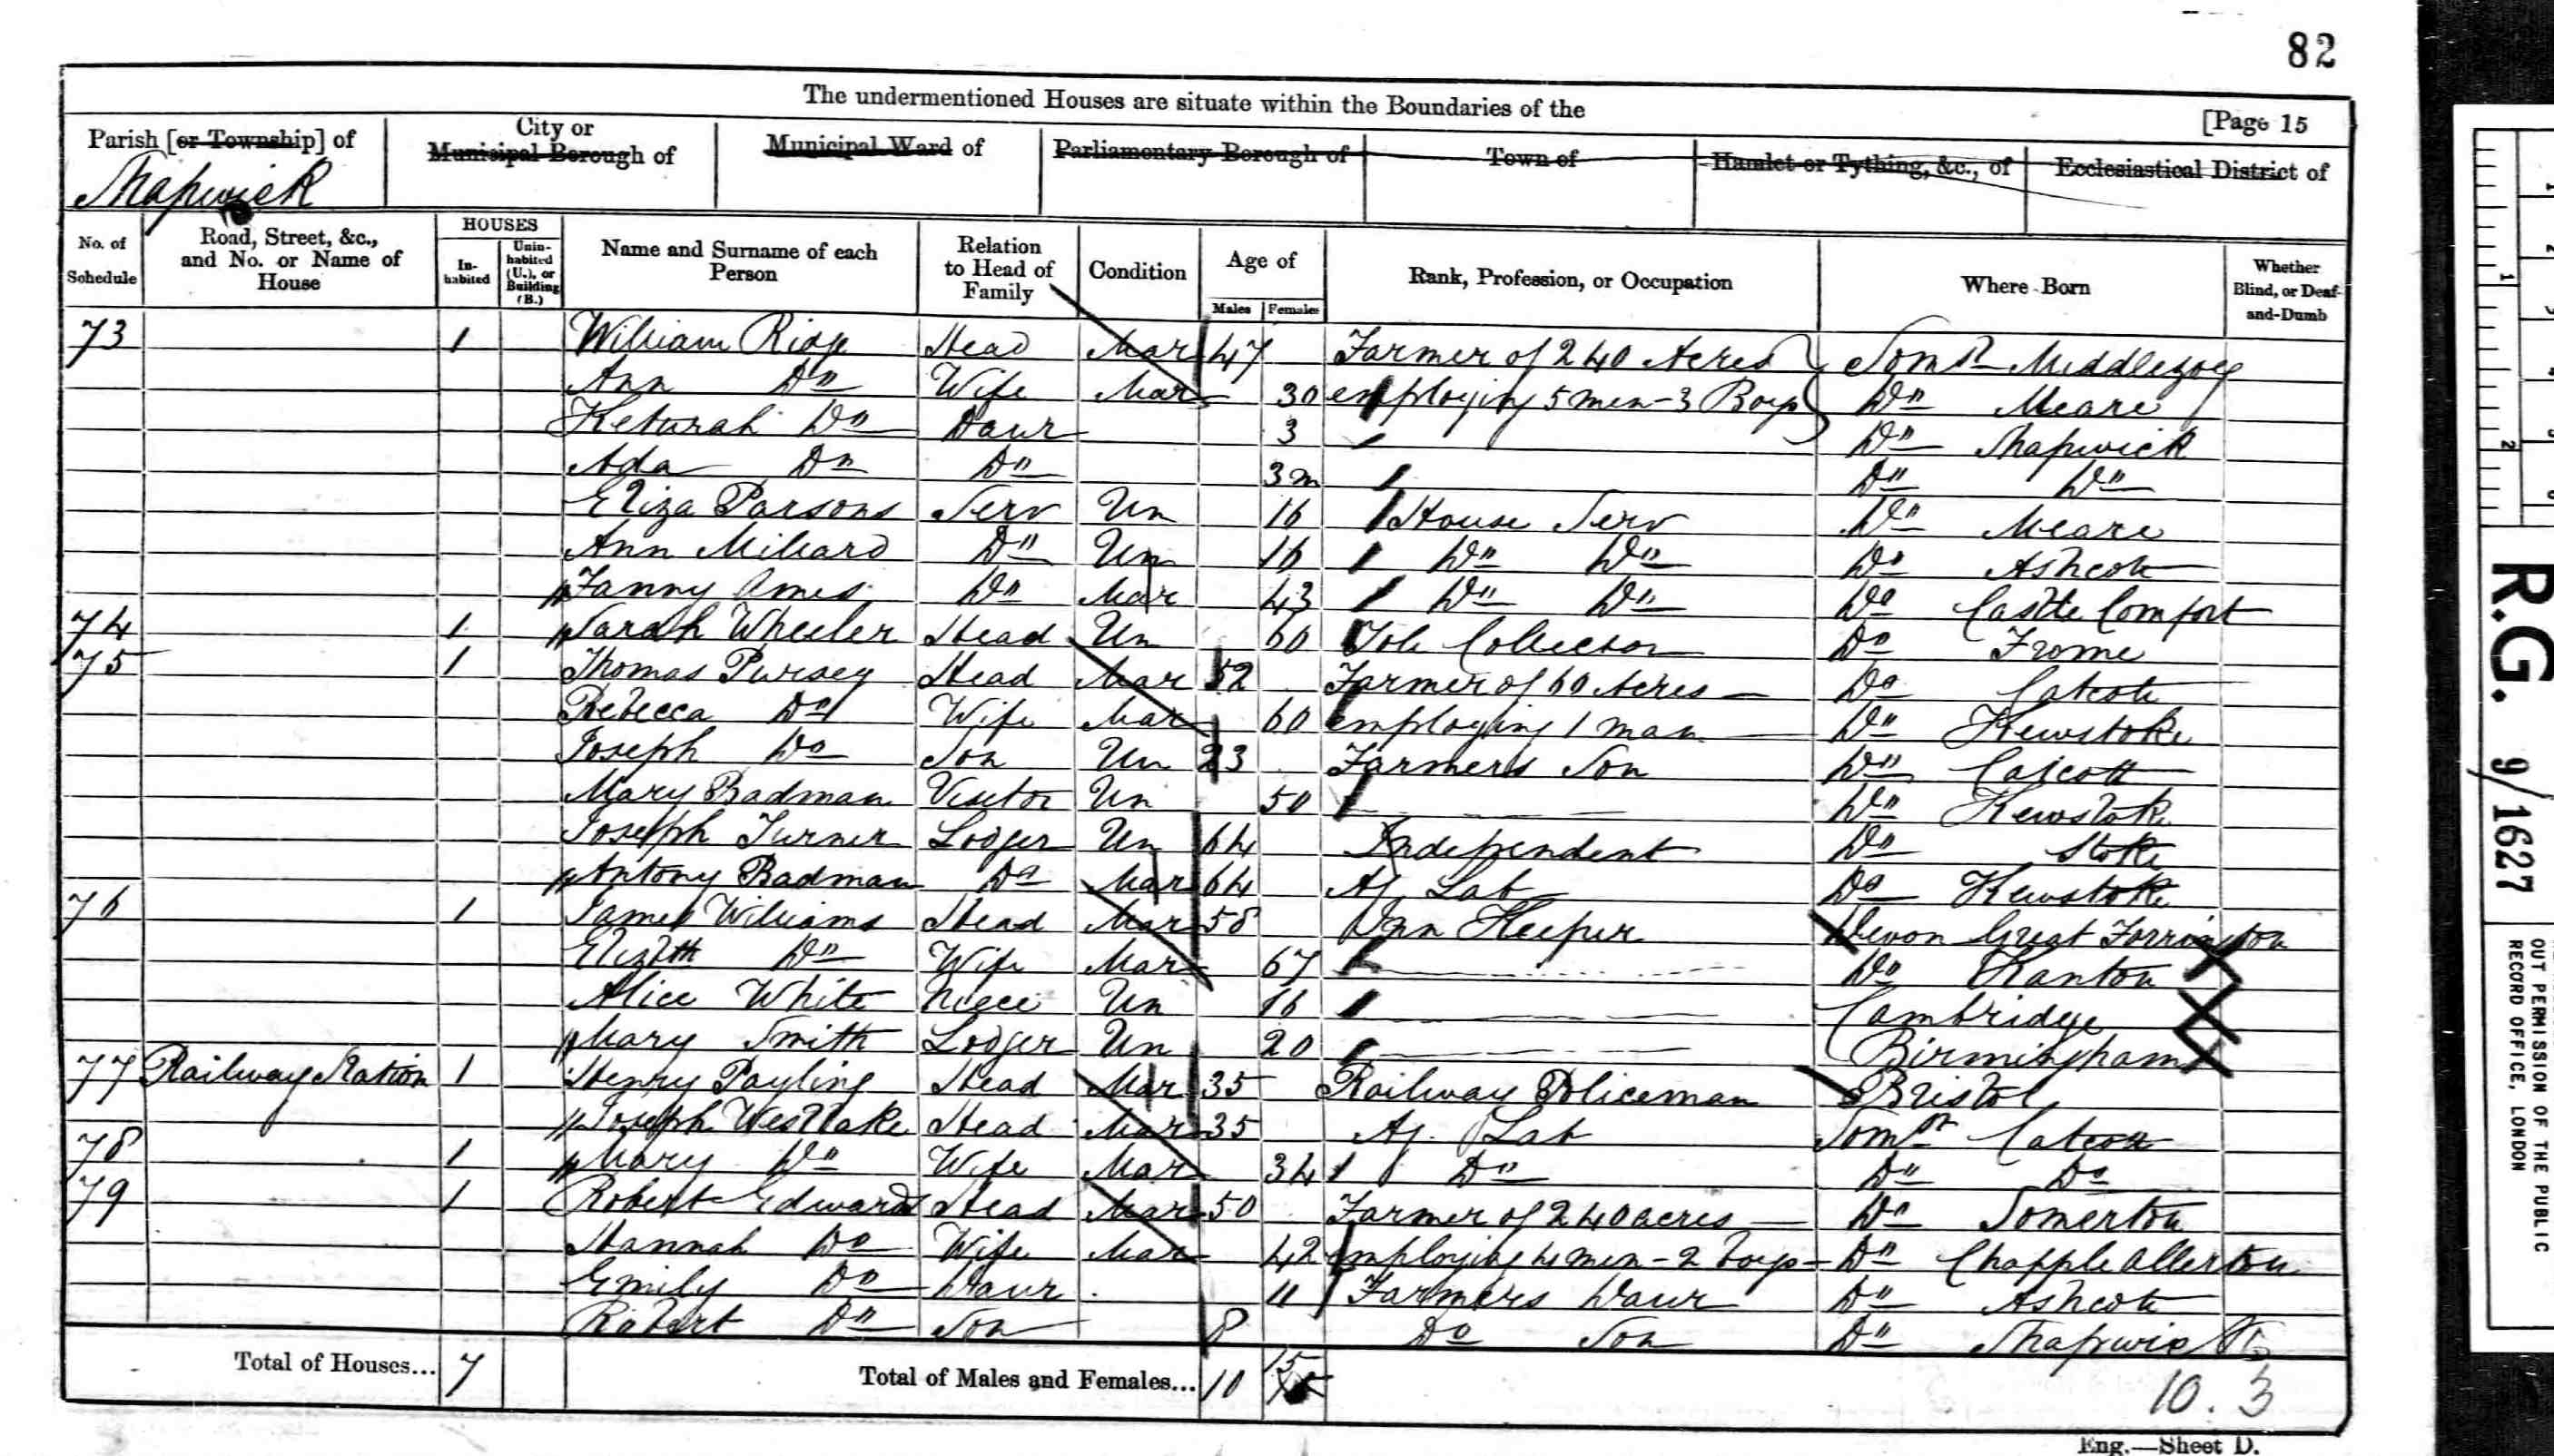 82
The undermentioned Houses are situate within the Boundaries of the
[Page 15
Parish [or Township] of
City or Municipal Borough of
Municipal Ward of
Parliamentary Borough of
Town of
Hamlet or Tything, &c., of
Ecclesiastical District of
Shapwick
No. of Schedule
Road, Street, &c., and No. or Name of House
HOUSES
In-habited
Unin-habited (U.), or Building (B.)
Name and Surname of each Person
Relation to Head of Family
Condition
Age of
Males
Females
Rank, Profession, or Occupation
Where Born
Whether Blind, or Deaf-and-Dumb
73 1 William Head Mar 47 Farmer of 240 Acres Somst Middlezoy
Ann Do Wife Mar 30 employing 5 men - 3 Boys Do Meare
Keturah Do Daur 3 Do Shapwick
Ada Do Do 3m Do Do
Eliza Parsons Serv Un 16 House Serv Do Meare
Ann Millard Do Un 16 Do Do Do Ashcott
Fanny Ames Do Mar 43 Do Do Do Castle Comfort
74 1 Sarah Wheeler Head Un 60 Collector Do Frome
75 1 Thomas Pursey Head Mar 52 Farmer of 60 Acres Do Catcott
Rebecca Do Wife Mar 60 employing 1 man Do Kewstoke
Joseph Do Son Un 23 Farmers Son Do Catcott
Mary Badman Visitor Un 50 Do Kewstoke
Joseph Turner Lodger Un 64 Independent Do Stoke
Antony Badman Do Mar 64 Ag Lab Do Kewstoke
76 1 James Williams Head Mar 58 Inn Keeper Devon Great Torrington
Elizbth Do Wife Mar 67 Do
Alice White Niece Un 16 Cambridge
Mary Smith Lodger Un 20 Birmingham
77 Railway Station 1 Henry Payling Head Mar 35 Railway Policeman Bristol
Joseph Westlake Head Mar 35 Ag. Lab Somst Catcott
78 1 Mary Do Wife Mar 34 Do Do Do
79 1 Robert Edwards Head Mar 50 Farmer of 240 acres Do Somerton
Hannah Do Wife Mar 42 employing 4 men - 2 boys Do Chapple Allerton
Emily Do Daur 11 Farmers Daur Do Ashcott
Robert Do Son 8 Do Son Do Shapwick
Total of Houses... 7
Total of Males and Females... 10 15
10.3
Eng.—Sheet D.
R.G. 9/1627
OUT PERMISSION OF THE PUBLIC
RECORD OFFICE, LONDON
1
2